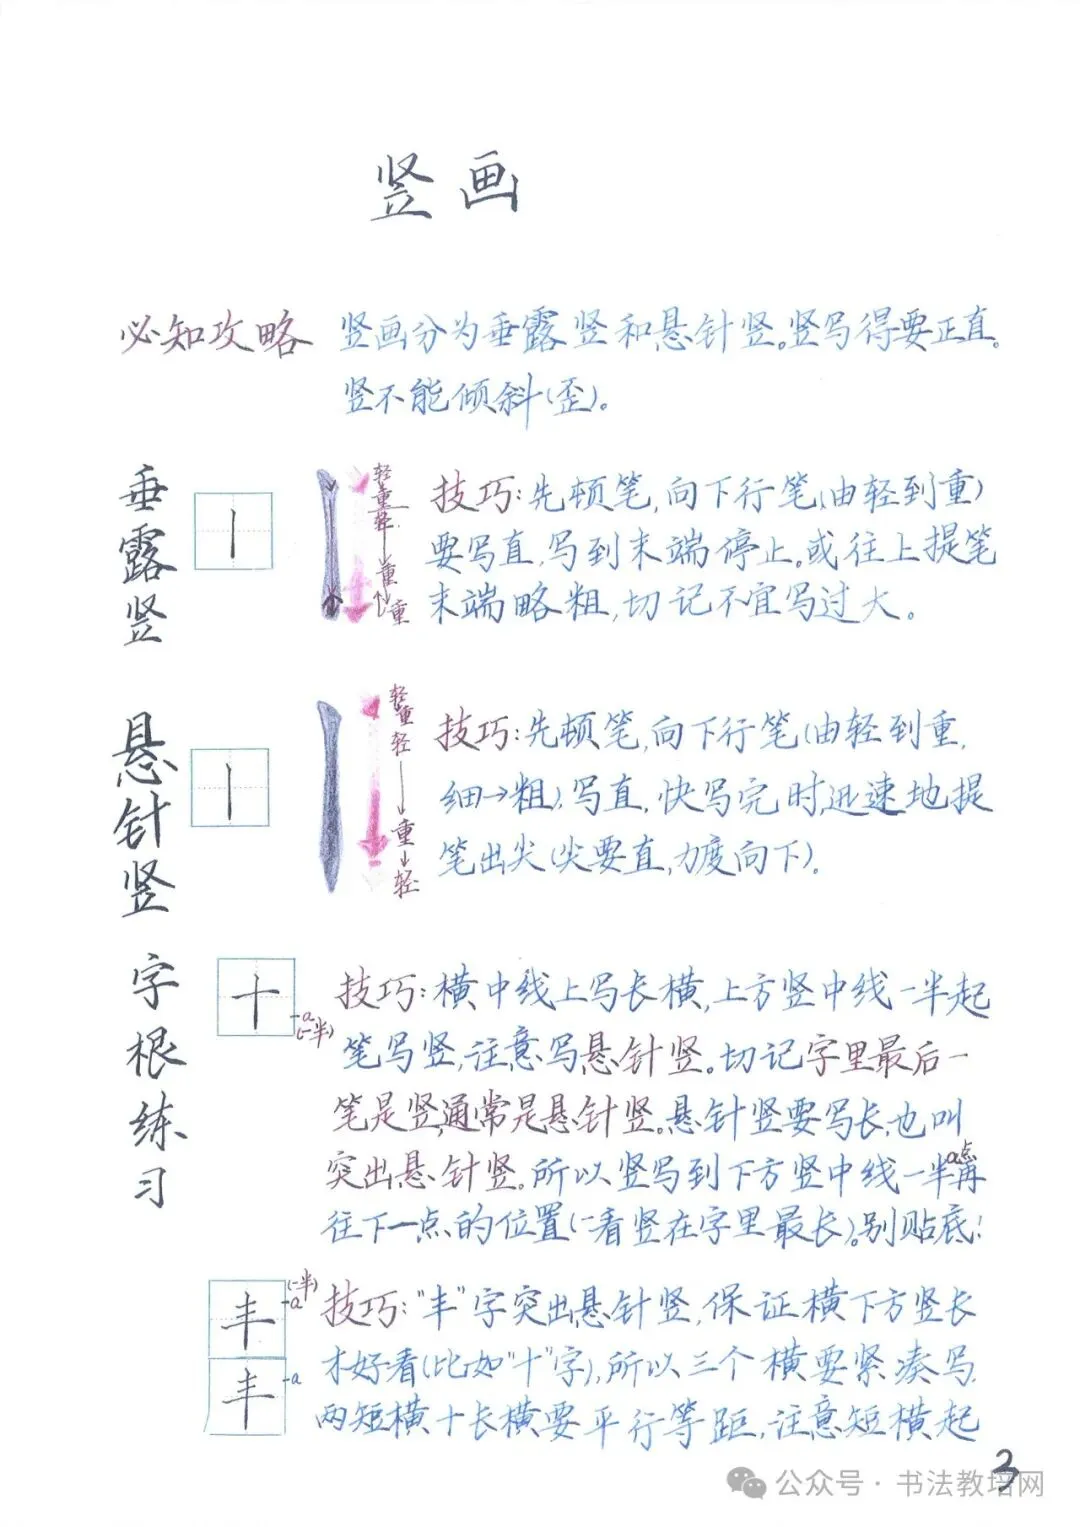 竖画
必知攻略 竖画分为垂露竖和悬针竖。竖写得要正直。
竖不能倾斜(歪)。
垂露竖
轻
重
轻
重
重
技巧:先顿笔,向下行笔(由轻到重)
要写直,写到末端停止。或往上提笔
末端略粗,切记不宜写过大。
悬针竖
轻
重
轻
重
轻
技巧:先顿笔,向下行笔(由轻到重,
细→粗),写直,快写完时,迅速地提
笔出尖(尖要直,力度向下)。
字根练习
十
-a
(一半)
技巧:横中线上写长横,上方竖中线一半起
笔写竖,注意写悬针竖。切记字里最后一
笔是竖,通常是悬针竖。悬针竖要写长,也叫
突出悬针竖。所以竖写到下方竖中线一半a点再
往下一点的位置(一看竖在字里最长)。别贴底!
丰
(一半)
-a
丰
-a
技巧:"丰"字突出悬针竖,保证横下方竖长
才好看(比如"十"字),所以三个横要紧凑写,
两短横十长横要平行等距,注意短横起
3
公众号·书法教培网